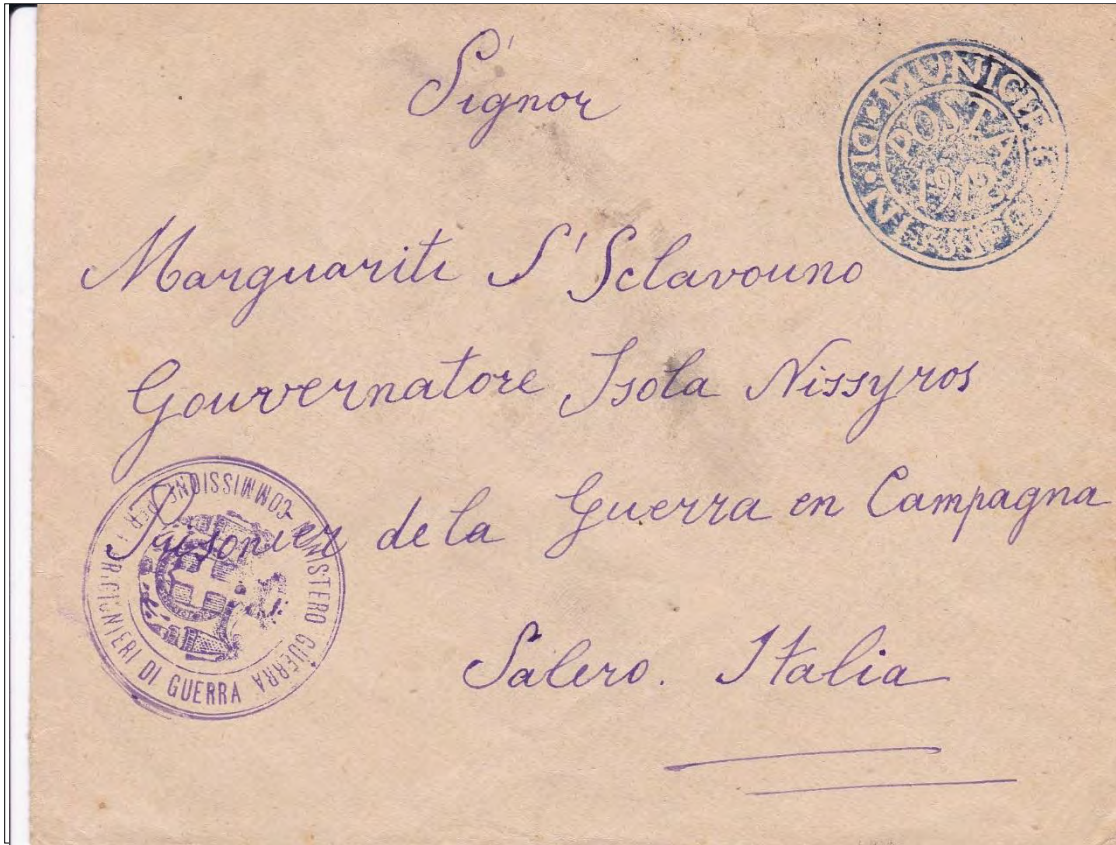 Signor
MUNICIP
DI
POSTA
1912
Marguariti S' Sclavouno
Gouvernatore Isola Nissyros
Prisonier de la Guerra en Campagna
MINISTERO GUERRA
COMMISSIONE PER I PRIGIONIERI DI GUERRA
Salero. Italia